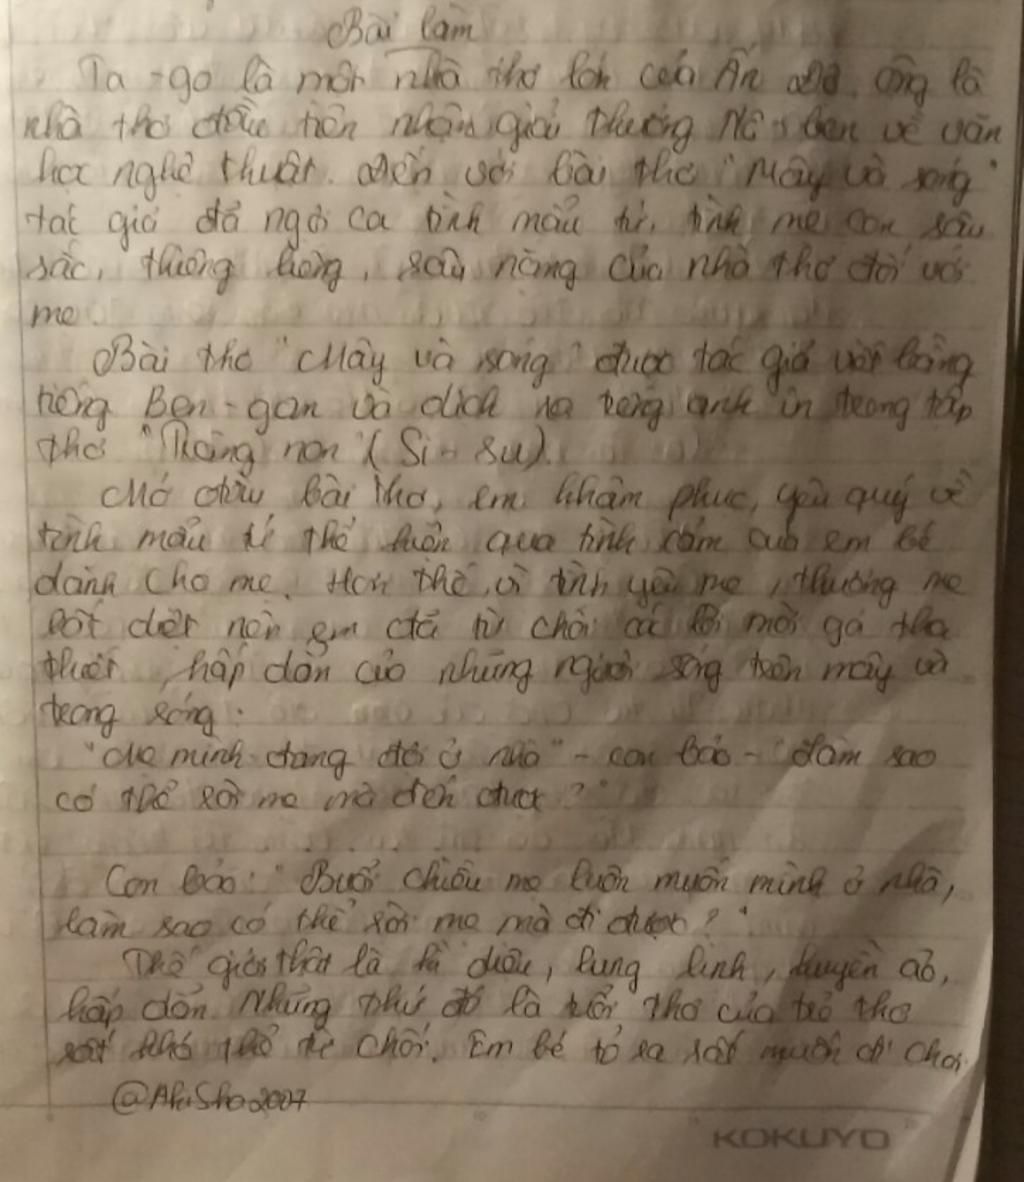 Bài làm
Ta-go là một nhà thơ lớn của Ấn Độ. Ông là
nhà thơ đầu tiên nhận giải thưởng Nô-ben về văn
học nghệ thuật. Đến với bài thơ "Mây và sóng"
tác giả đã ngợi ca tình mẫu tử, tình mẹ con sâu
sắc, thiêng liêng, sâu nặng của nhà thơ đối với
mẹ.
Bài thơ "Mây và sóng" được tác giả viết bằng
tiếng Ben-gan và dịch ra tiếng anh in trong tập
thơ "Trăng non" (Si-su).
Mở đầu bài thơ, em khâm phục, yêu quý về
tình mẫu tử thể hiện qua tình cảm của em bé
dành cho mẹ. Hơn thế, vì tình yêu mẹ, thương mẹ
rất nên em đã từ chối cả lời mời gọi tha
thiết, hấp dẫn của những người sống trên mây và
trong sóng:
"Mẹ mình đang đợi ở nhà" - con bảo - "Làm sao
có thể rời mẹ mà đến được?"
Con bảo: "Buổi chiều mẹ luôn muốn mình ở nhà,
làm sao có thể rời mẹ mà đi được?"
Thế giới thật là kì diệu, lung linh, huyền ảo,
hấp dẫn những thứ đó là tuổi thơ của trẻ thơ
rất khó thể từ chối. Em bé tỏ ra rất muốn đi chơi
@AkiSho2007
KOKUYO